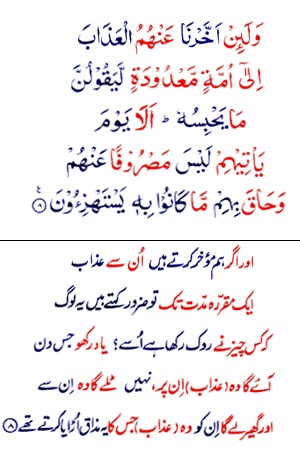 وَلَئِنْ اَخَّرْنَا عَنْهُمُ الْعَذَابَ
اِلٰٓى اُمَّةٍ مَّعْدُوْدَةٍ لَّيَقُوْلُنَّ
مَا يَحْبِسُهٗ ؕ اَلَا يَوْمَ
يَاْتِيْهِمْ لَيْسَ مَصْرُوْفًا عَنْهُمْ
وَحَاقَ بِهِمْ مَّا كَانُوْا بِهٖ يَسْتَهْزِءُوْنَ ﴿۸﴾
اور اگر ہم مؤخر کرتے ہیں اُن سے عذاب
ایک مقررہ مدّت تک تو ضرور کہتے ہیں یہ لوگ
کہ کس چیز نے روک رکھا ہے اُسے؟ یاد رکھو جس دن
آئے گا وہ (عذاب) اِن پر، نہیں ٹلے گا وہ اِن سے
اور گھیر لے گا اِن کو وہ (عذاب) جس کا یہ مذاق اُڑایا کرتے تھے ﴿۸﴾